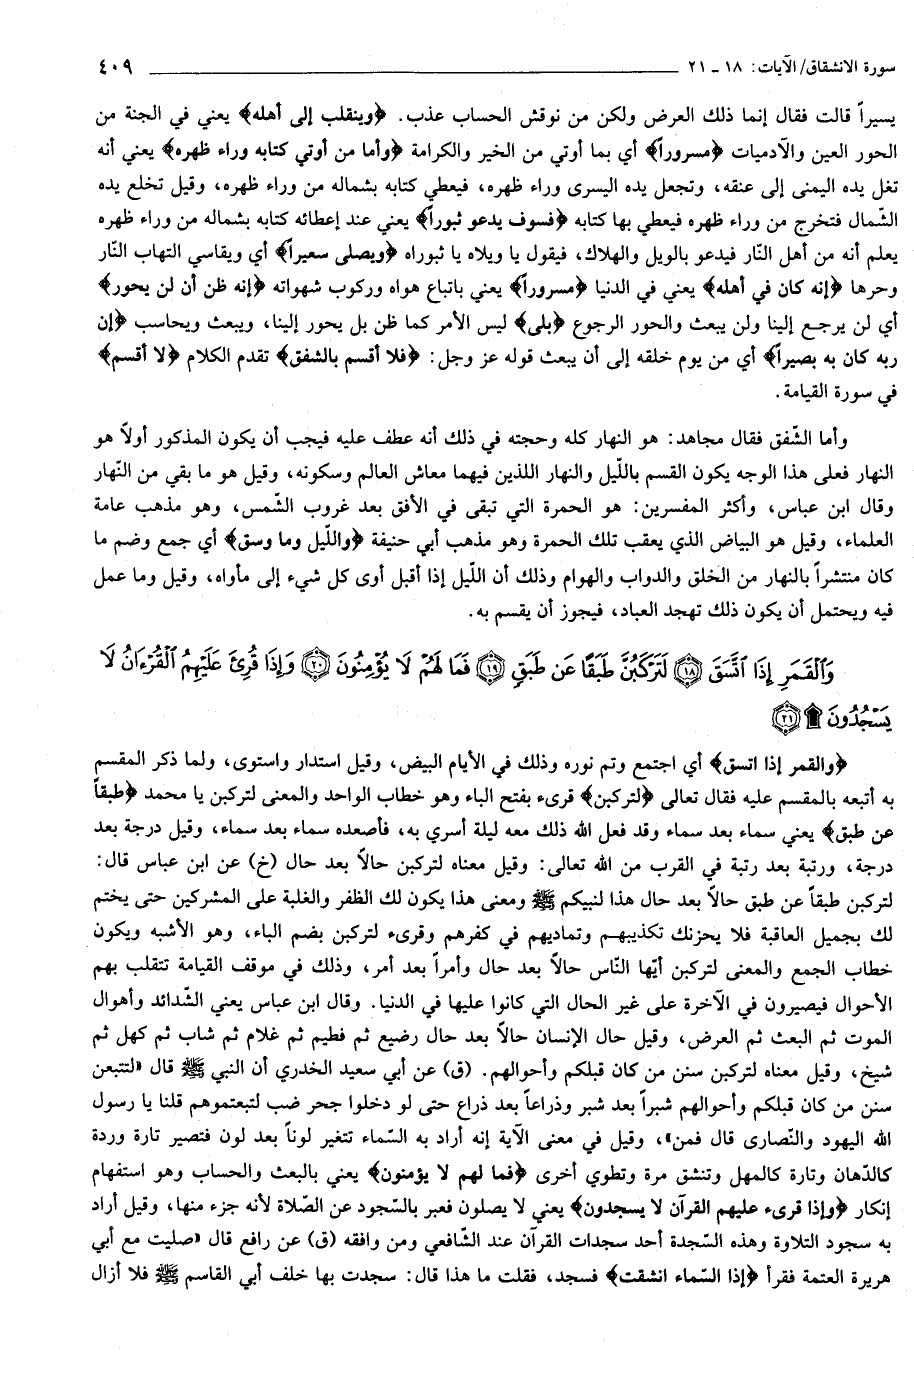 سورة الانشقاق/ الآيات: ١٨ ـ ٢١ ٤٠٩
يسيراً قالت فقال إنما ذلك العرض ولكن من نوقش الحساب عذب. ﴿وينقلب إلى أهله﴾ يعني في الجنة من
الحور العين والآدميات ﴿مسروراً﴾ أي بما أوتي من الخير والكرامة ﴿وأما من أوتي كتابه وراء ظهره﴾ يعني أنه
تغل يده اليمنى إلى عنقه، وتجعل يده اليسرى وراء ظهره، فيعطي كتابه بشماله من وراء ظهره، وقيل تخلع يده
الشّمال فتخرج من وراء ظهره فيعطي بها كتابه ﴿فسوف يدعو ثبوراً﴾ يعني عند إعطائه كتابه بشماله من وراء ظهره
يعلم أنه من أهل النّار فيدعو بالويل والهلاك، فيقول يا ويلاه يا ثبوراه ﴿ويصلى سعيراً﴾ أي ويقاسي التهاب النّار
وحرها ﴿إنه كان في أهله﴾ يعني في الدنيا ﴿مسروراً﴾ يعني باتباع هواه وركوب شهواته ﴿إنه ظن أن لن يحور﴾
أي لن يرجع إلينا ولن يبعث والحور الرجوع ﴿بلى﴾ ليس الأمر كما ظن بل يحور إلينا، ويبعث ويحاسب ﴿إن
ربه كان به بصيراً﴾ أي من يوم خلقه إلى أن يبعث قوله عز وجل: ﴿فلا أقسم بالشفق﴾ تقدم الكلام ﴿لا أقسم﴾
في سورة القيامة.
وأما الشّفق فقال مجاهد: هو النهار كله وحجته في ذلك أنه عطف عليه فيجب أن يكون المذكور أولاً هو
النهار فعلى هذا الوجه يكون القسم باللّيل والنهار اللذين فيهما معاش العالم وسكونه، وقيل هو ما بقي من النّهار
وقال ابن عباس، وأكثر المفسرين: هو الحمرة التي تبقى في الأفق بعد غروب الشّمس، وهو مذهب عامة
العلماء، وقيل هو البياض الذي يعقب تلك الحمرة وهو مذهب أبي حنيفة ﴿واللّيل وما وسق﴾ أي جمع وضم ما
كان منتشراً بالنهار من الخلق والدواب والهوام وذلك أن اللّيل إذا أقبل أوى كل شيء إلى مأواه، وقيل وما عمل
فيه ويحتمل أن يكون ذلك تهجد العباد، فيجوز أن يقسم به.
وَٱلْقَمَرِ إِذَا ٱتَّسَقَ ﴿١٨﴾ لَتَرْكَبُنَّ طَبَقًا عَن طَبَقٍ ﴿١٩﴾ فَمَا لَهُمْ لَا يُؤْمِنُونَ ﴿٢٠﴾ وَإِذَا قُرِئَ عَلَيْهِمُ ٱلْقُرْءَانُ لَا
يَسْجُدُونَ ۩ ﴿٢١﴾
﴿والقمر إذا اتسق﴾ أي اجتمع وتم نوره وذلك في الأيام البيض، وقيل استدار واستوى، ولما ذكر المقسم
به أتبعه بالمقسم عليه فقال تعالى ﴿لتركبن﴾ قرىء بفتح الباء وهو خطاب الواحد والمعنى لتركبن يا محمد ﴿طبقاً
عن طبق﴾ يعني سماء بعد سماء وقد فعل الله ذلك معه ليلة أسري به، فأصعده سماء بعد سماء، وقيل درجة بعد
درجة، ورتبة بعد رتبة في القرب من الله تعالى: وقيل معناه لتركبن حالاً بعد حال (خ) عن ابن عباس قال:
لتركبن طبقاً عن طبق حالاً بعد حال هذا لنبيكم ﷺ ومعنى هذا يكون لك الظفر والغلبة على المشركين حتى يختم
لك بجميل العاقبة فلا يحزنك تكذيبهم وتماديهم في كفرهم وقرىء لتركبن بضم الباء، وهو الأشبه ويكون
خطاب الجمع والمعنى لتركبن أيّها النّاس حالاً بعد حال وأمراً بعد أمر، وذلك في موقف القيامة تتقلب بهم
الأحوال فيصيرون في الآخرة على غير الحال التي كانوا عليها في الدنيا. وقال ابن عباس يعني الشّدائد وأهوال
الموت ثم البعث ثم العرض، وقيل حال الإنسان حالاً بعد حال رضيع ثم فطيم ثم غلام ثم شاب ثم كهل ثم
شيخ، وقيل معناه لتركبن سنن من كان قبلكم وأحوالهم. (ق) عن أبي سعيد الخدري أن النبي ﷺ قال «لتتبعن
سنن من كان قبلكم وأحوالهم شبراً بعد شبر وذراعاً بعد ذراع حتى لو دخلوا جحر ضب لتبعتموهم قلنا يا رسول
الله اليهود والنّصارى قال فمن»، وقيل في معنى الآية إنه أراد به السّماء تتغير لوناً بعد لون فتصير تارة وردة
كالدّهان وتارة كالمهل وتنشق مرة وتطوي أخرى ﴿فما لهم لا يؤمنون﴾ يعني بالبعث والحساب وهو استفهام
إنكار ﴿وإذا قرىء عليهم القرآن لا يسجدون﴾ يعني لا يصلون فعبر بالسّجود عن الصّلاة لأنه جزء منها، وقيل أراد
به سجود التلاوة وهذه السّجدة أحد سجدات القرآن عند الشّافعي ومن وافقه (ق) عن رافع قال «صليت مع أبي
هريرة العتمة فقرأ ﴿إذا السّماء انشقت﴾ فسجد، فقلت ما هذا قال: سجدت بها خلف أبي القاسم ﷺ فلا أزال